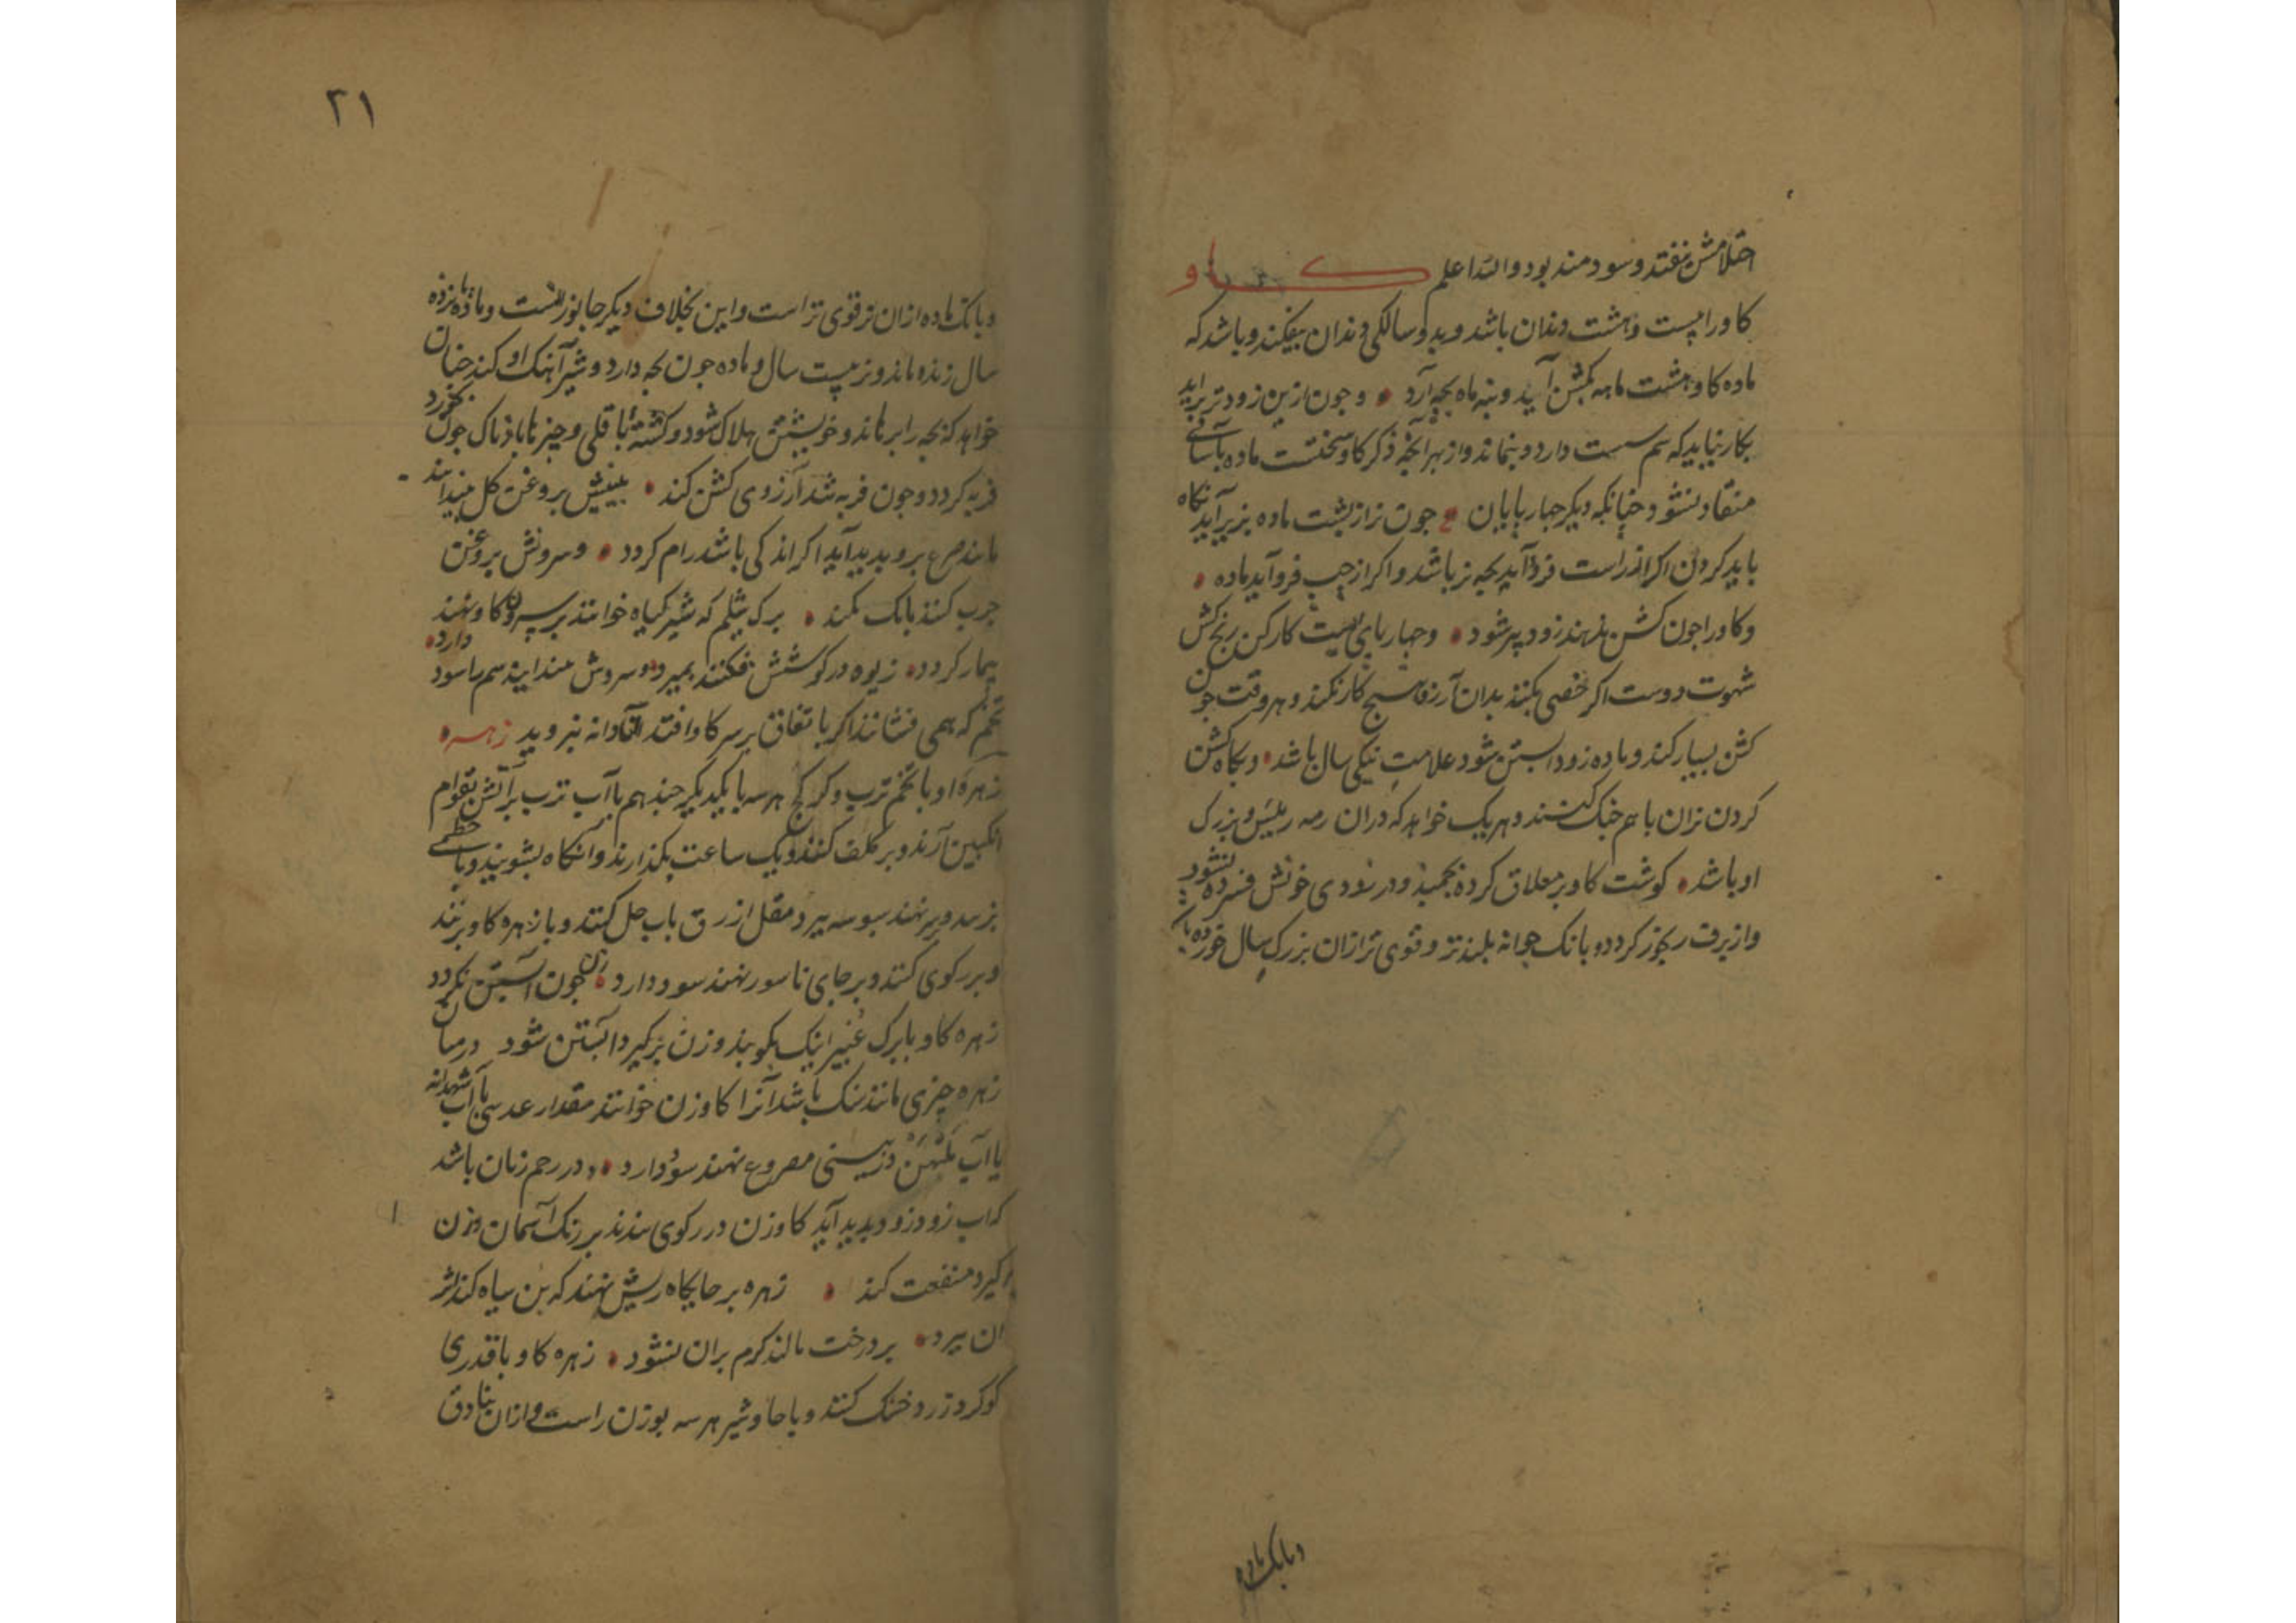 احتلامش نیفتد و سودمند بود والله اعلم کاو
کاو را بیست و هشت دندان باشد و بدو سالکی دندان بیفکند و باشد که
ماده کاو هشت ماهه بکشن آید و بنه ماه بچه آرد • و جون ازین زودتر براید
بکار نیاید که سم سست دارد و بنماند و از بهر آنکه ذکر کاو سختست ماده بآسانی
منقاد نشود چنانکه دیکر جهارپایان • جون نر از پشت ماده بزیر آید نکاه
باید کردن اکر از راست فرو آید بچه نر باشد و اکر از جپ فرو آید ماده •
و کاو را جون کشن ندهند زود پیر شود • و جهارپای است کارکن رنج کش
شهوت دوست اکر خصی بکنند بدان آرزو هیج کار نکند و هر وقت جون
کشن بسیار کند و ماده زود ابستن شود علامت نیکی سال باشد • و بکاه کشن
کردن نران با هم جنک کنند و هر یک خواهد که دران رمه رئیس و بزرک
او باشد • کوشت کاو بر معلاق کرده بجنبد و در زودی خونش فسرده نشود
و از برف رنجور کردد و بانک جوانه بلندتر و قوی تر ازان بزرک سال خورده
و بانک ماده
۲۱
و بانک ماده ازان نر قوی تر است و این بخلاف دیکر جانورانست و ماده پانزده
سال زنده ماند و نر بیست سال و ماده جون بچه دارد و شیر آهنک او کند جنان
خواهد که بچه را برهاند و خویشتن هلاک شود و کشته باقلی و چیزها بادناک جون بخورد
فربه کردد و جون فربه شد آرزوی کشن کند • بینیش بروغن کل بیندایند
مانند صرع برو پدید آید اکر اندکی باشد رام کردد • و سرونش بروغن
جرب کنند بانک نکند • برک شلم که شیر کیاه خوانند بر سرون کاو نهند
بیمار کردد • زیوه در کوشش فکنند بمیرد • سروش سم را سود دارد •
تخم که همی فشانند اکر باتفاق بر سر کاو افتد آن دانه نروید زهره
زهره او با تخم ترب و کرکج هر سه با یکدیکر جند هم با آب ترب بر آتش بقوام
انکبین آرند و بر کلف کنند و یک ساعت بکذارند و آنکاه بشویند و با خطمی
بر نهند سبوسه ببرد مقل ازرق باب حل کنند و با زهره کاو بزنند
و بر رکوی کنند و بر جای ناسور نهند سود دارد • زن جون آبستن نکردد
زهره کاو با برک غبیرا نیک بکوبند و زن برکیرد ابستن شود در میان
زهره چیزی مانند سنک باشد آنرا کاوزن خوانند مقدار عدسی با آب شهدانه
یا آب در بینی مصروع نهند سود دارد • و در رحم زنان باشد
که اب زود زود پدید آید کاوزن در رکوی بندند بر رنک آسمان و زن
برکیرد منفعت کند • زهره بر جایکاه ریش نهند که بن سیاه کند اثر
ان ببرد • بر درخت مالند کرم بران نشود • زهره کاو با قدری
کوکرد زرد خشک کنند و با جاوشیر هر سه بوزن راست و ازان بنادق